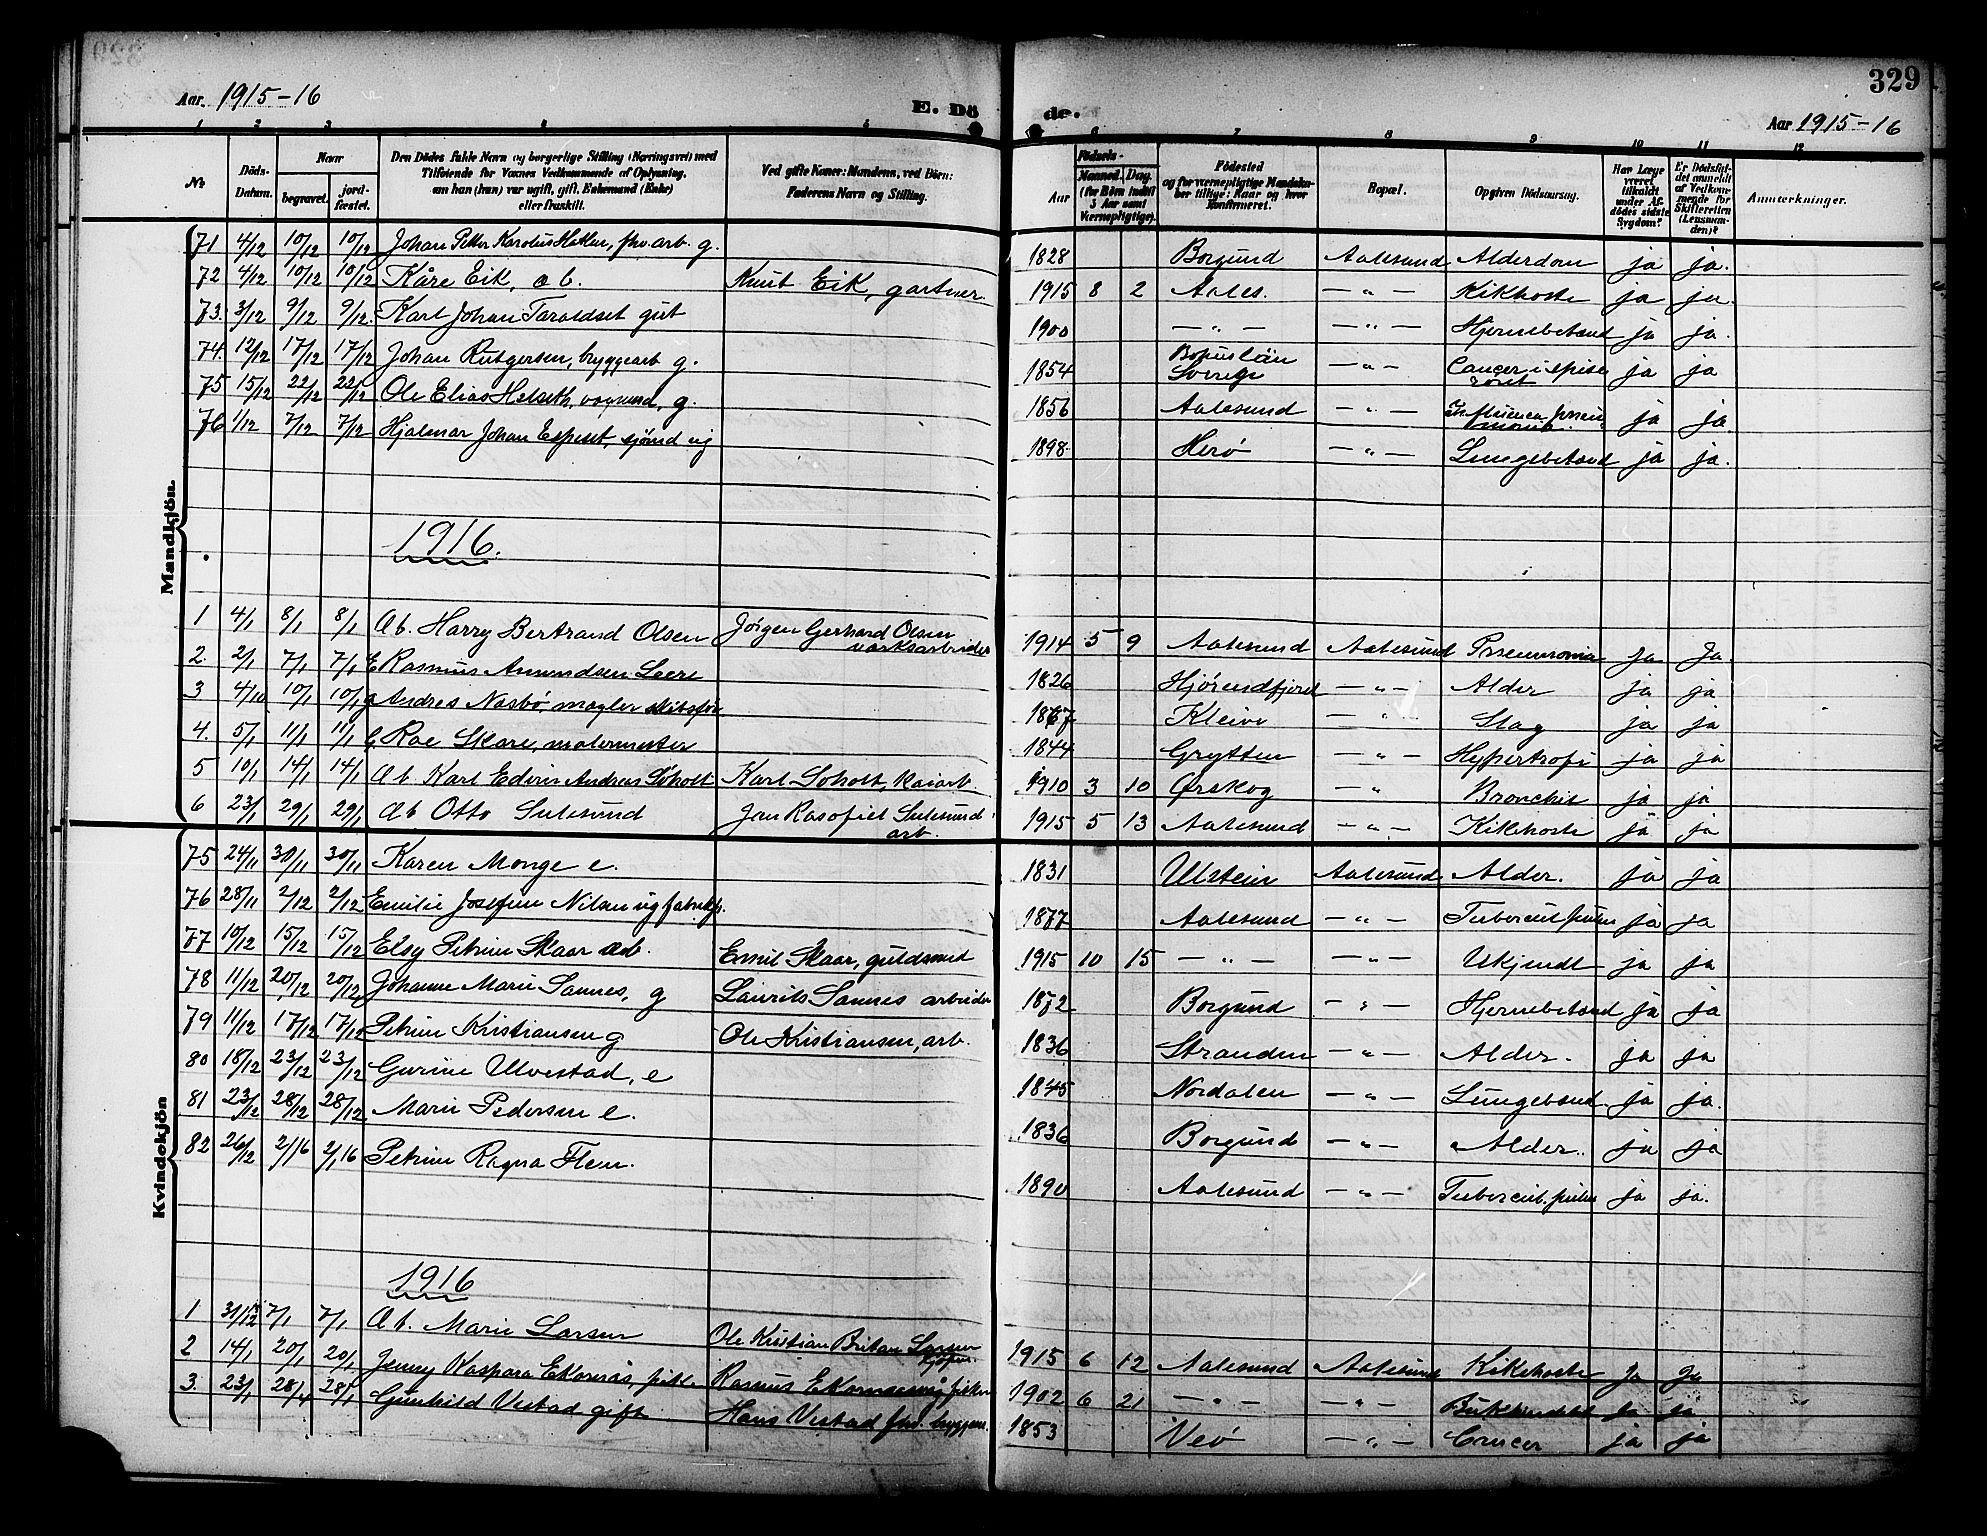 329
Aar. 1915-16 E. Dö de. Aar 1915-16
1 2 3 6 7 8 9 10 11 12
No. Döds-Datum. Naar begravet. jordfæstet. Den Dödes fulde Navn og borgerlige Stilling (Næringsvei) med Tilføiende for Voxnes Vedkommende af Oplysning, om han (hun) var ugift, gift, Enkemand (Enke) eller fraskilt. Ved gifte Koner: Mandens, ved Börn: Faderens Navn og Stilling. Aar Födsels- Maaned. Dag. (for Börn indtil 5 Aar samt Værnepligtige). Födested og for værnepligtige Mandskaber tillige: Naar og hvor Konfirmeret. Bopæl. Opgiven Dödsaarsag. Har Læge været tilkaldt under Afdødes sidste Sygdom? Er Dödsfaldet anmeldt af Vedkommende for Skifteretten (Lensmanden)? Anmerkninger.
Mandkjön.
71 4/12 10/12 10/12 Johan Petter Karolus Hatlen, fhv. arb. g. 1828 Borgund Aalesund Alderdom ja ja.
72 4/12 10/12 10/12 Kåre Eik, æb. Knut Eik, gartner 1915 8 2 Aales. — " — Kikhoste ja ja.
73. 3/12 9/12 9/12. Karl Johan Taraldset gut 1900 — " — — " — Hjernebetænd ja ja.
74. 12/12 17/12 17/12 Johan Rutgersen, bryggearb g. 1854 Bohuslän Sverige — " — Cancer i spiserøret ja ja
75 15/12 22/12 22/12 Ole Elias Helseth, vognmd, g. 1856 Aalesund — " — Influenca pneumonie. ja ja.
76 1/12 7/12 7/12 Hjalmar Johan Espeset, sjömd ug 1898 Herø — " — Lungebetænd ja ja.
1916.
1 4/1 8/1 8/1 Æb. Harry Bertrand Olsen Jørgen Gerhard Olsen værksarbeider 1914 5 9 Aalesund Aalesund Pneumonia ja Ja
2. 2/1 7/1 7/1 E Rasmus Amundsen Leere 1826 Hjørundfjord — " — Alder ja ja
3 4/10 10/1 10/1 g Andres Nasbø, mægler skibsfør 1867 Kleive — " Slag ja ja
4. 5/1 11/1 11/1 G Roe Skare, malermester 1844 Grytten — " — Hypertrofi ja ja
5 10/1 14/1 14/1 Æb Karl Edvin Andreas Søholt Karl Soholt kaiarb. 1910 3 10 Ørskog — " Bronchit ja ja
6 23/1 29/1 29/1 Æb Otto Sulesund Jon Rasofiel Sulesund arb. 1915 5 13 Aalesund — " — Kikhoste ja ja
Kvindekjön
75 24/11 30/11 30/11 Karen Monge e. 1831 Ulstein Aalesund Alder. ja ja
76 28/11 2/12 2/12 Emilie Josefine Nilsen ug fabrikp. 1877 Aalesund — " — Tubercul. pulm ja ja
77 10/12 15/12 15/12 Elsy Petrine Skaar æb. Emil Skaar, guldsmed 1915 10 15 — " — — " — Ukjendt ja ja
78 11/12 20/12 20/12 Johanne Marie Sannes, g Laurits Sannes arbeider 1872 Borgund — " — Hjernebetænd ja ja
79 11/12 17/12 17/12 Petrine Kristiansen g Ole Kristiansen, arb. 1836 Stranden — " — Alder. ja ja
80 18/12 23/12 23/12 Gurine Ulvestad, e 1845 Nordalen — " — Lungebænd. ja ja.
81 23/12 28/12 28/12 Marie Pedersen e. 1836 Borgund — " — Alder. ja ja
82 26/12 2/1 16 2/1 16 Petrine Ragna Flem. 1890 Aalesund — " — Tubercul. pulm ja ja.
1916
1 31/12 7/1 7/1 Æb. Marie Larsen Ole Kristian Larsen 1915 6 12 Aalesund Aalesund Kikhoste ja Ja
2 14/1 20/1 20/1 Jenny Kaspara Ekornæs, pike Rasmus 1902 6 21 — " — — " — ja ja
3. 23/1 28/1 28/1 Gunhild Vestad gift Hans Vestad fhv. byggm. 1853 Veø — " — Cancer ja ja